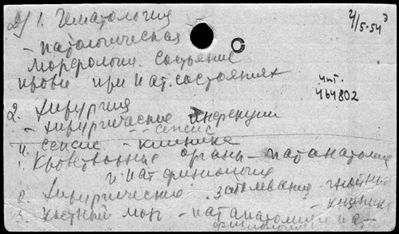 1. Гематология
4/5-54 г
- патологическая
морфология. состояние
крови при пат. состояниях
чит.
464802
2. Хирургия
- хирургические инфекции
- сепсис
сепсис - клинике
1. Кроветворные органы - пат анатомия
и пат физиология
2. Хирургические заболевания гнойные
- клиника
3. Костный мозг - пат анатомия и па-
физиология